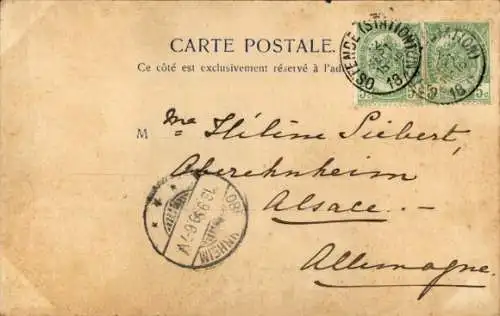 CARTE POSTALE.
Ce côté est exclusivement réservé à l'ad
OSTENDE (STATION)
18
5c
(STATION)
18
5c
M me Hélène Siebert,
Oberehnheim
Alsace. -
Allemagne.
NHEIM